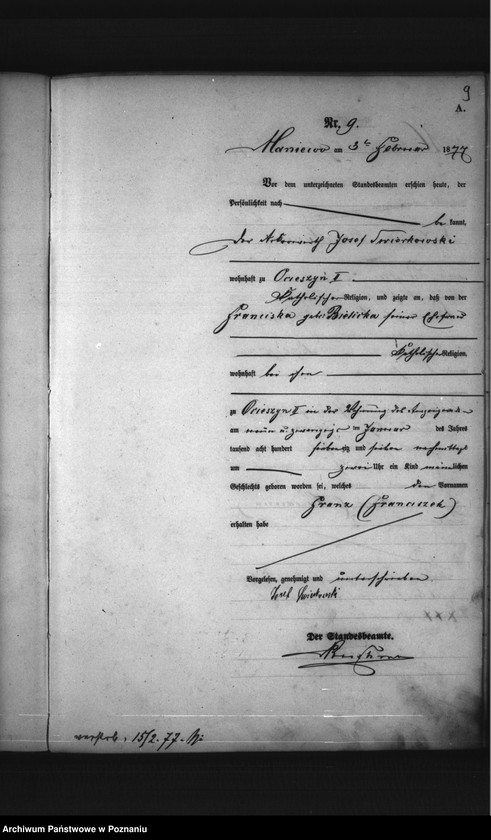 9
A.
Nr. 9.
Maniewo am 3ten Februar 1877
Vor dem unterzeichneten Standesbeamten erschien heute, der
Persönlichkeit nach
be kannt,
der Ackerwirth Josef
wohnhaft zu Ocieszyn II
Katholischer Religion, und zeigte an, daß von der
Franciska geb. Bielicka seiner Ehefrau
Katholischer Religion,
wohnhaft bei ihm
zu Ocieszyn II in der Wohnung des Anzeigenden
am neun u. zwanzigs ten Januar des Jahres
tausend acht hundert siebenzig und sieben nachmittags
um zwei Uhr ein Kind männlichen
Geschlechts geboren worden sei, welches den Vornamen
Franz (Franciszek)
erhalten habe
Vorgelesen, genehmigt und unterschrieben
Josef
Der Standesbeamte.
verstorb. 15/2. 77.
Archiwum Państwowe w Poznaniu